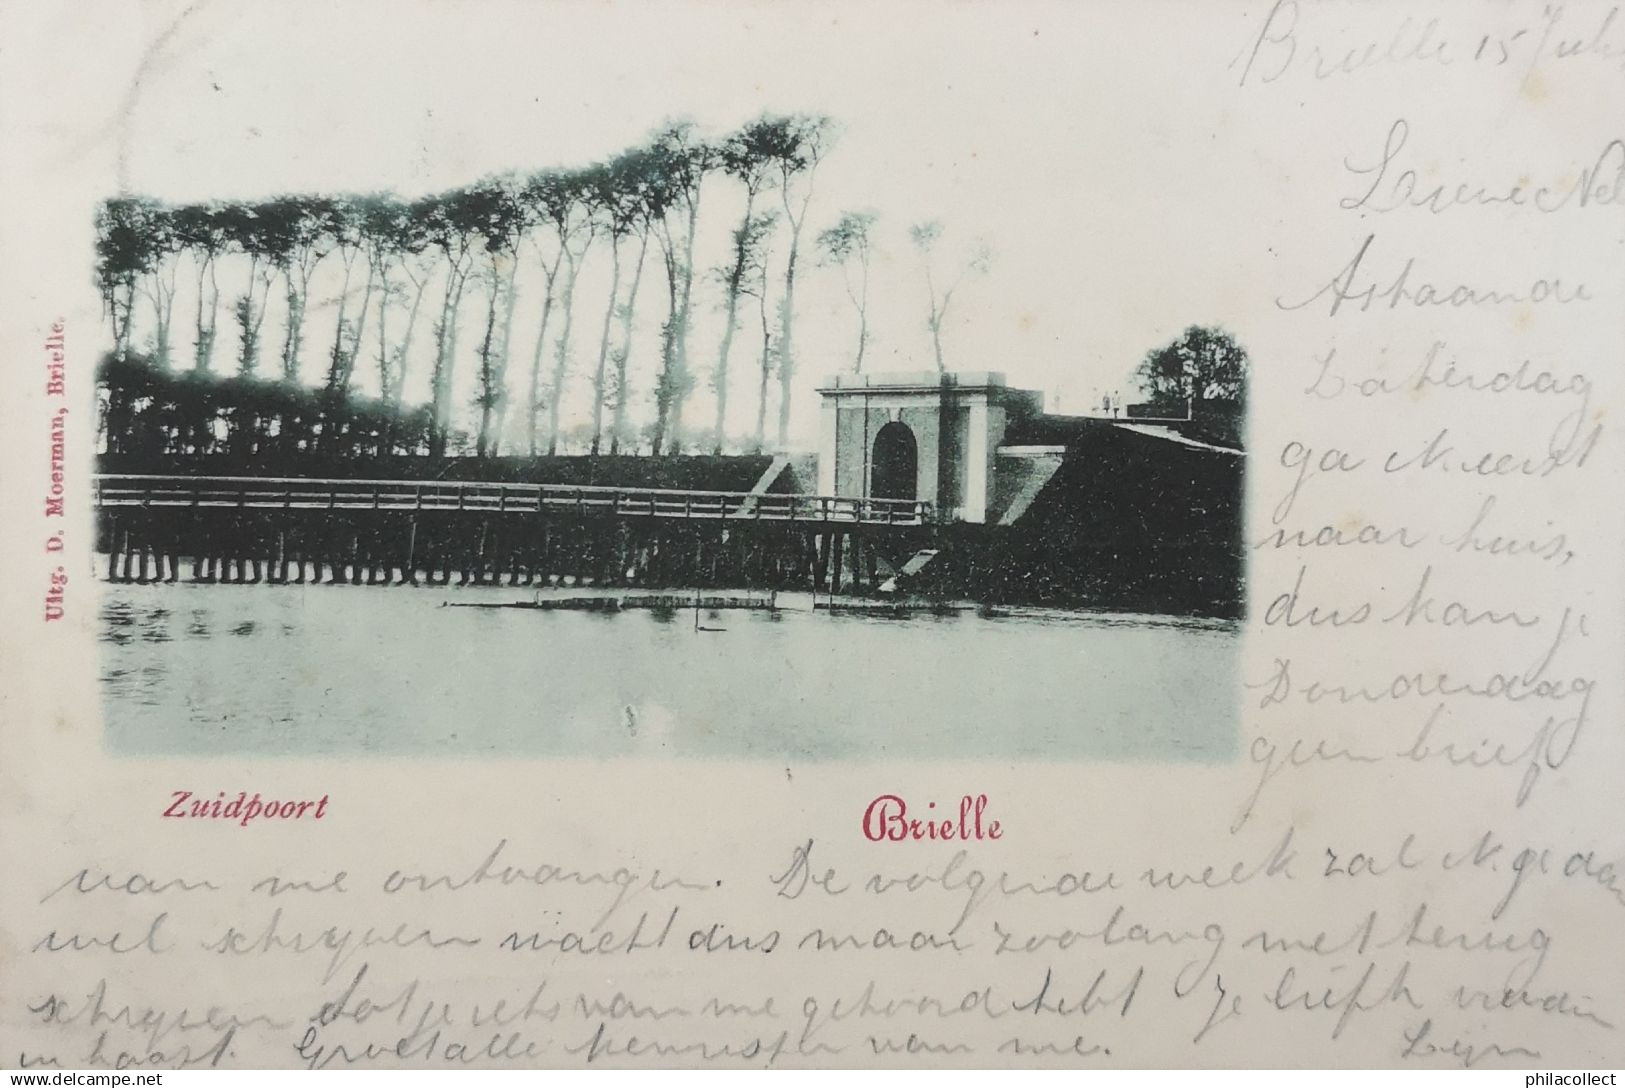 Brielle 15 July
Lieve Nel
Astaande
Zaterdag
ga ik eerst
naar huis,
dus kan je
Donderdag
geen brief
Uitg. D. Moerman, Brielle.
Zuidpoort
Brielle
van me ontvangen. De volgende week zal ik je dan
wel schryven wacht dus maar zoolang met terug
schryven tot je iets van me gehoord hebt Je liefh vriendin
in haast. Groet alle kennissen van me. Leyn
philacollect